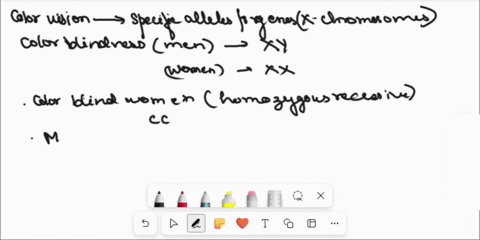 Color vision → specific alleles for genes (X-chromosomes)
Color blindness (men) → XY
(women) → XX
. Color blind women (homozygous recessive)
cc
. M
T